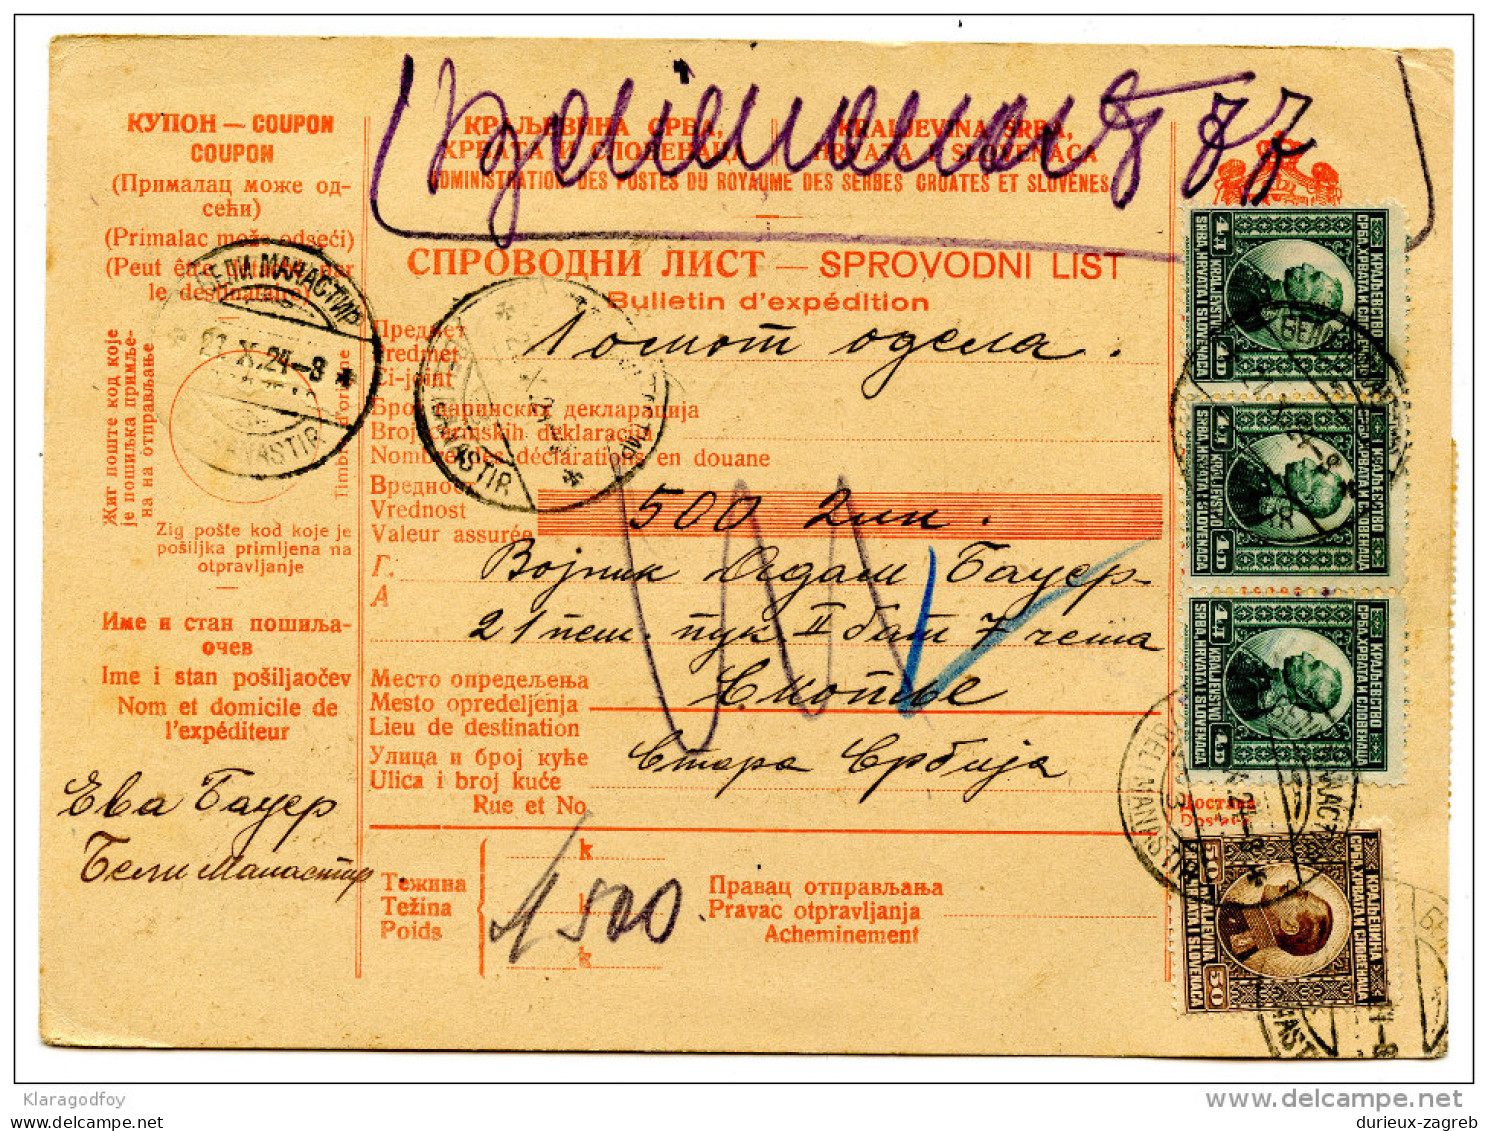 КУПОН — COUPON
COUPON
(Прималац може од-
сећи)
(Primalac može odseći)
(Peut être
le destinataire)
КРАЉЕВИНА СРБА,
ХРВАТА И СЛОВЕНАЦА
KRALJEVINA SRBA,
HRVATA I SLOVENACA
ADMINISTRATION DES POSTES DU ROYAUME DES SERBES CROATES ET SLOVÈNES
СПРОВОДНИ ЛИСТ — SPROVODNI LIST
Bulletin d'expédition
БЕЛИ МАНАСТИР
21 X.24–8
Предмет
Predmet
Ci-joint
одела.
Број царинских декларација
Broj carinskih deklaracija
Nombre des déclarations en douane
Вредност
Vrednost
Valeur assurée
500 дин.
Г.
А
Војник Адам Бауер
21 пеш. пук II бат 7 чета
Скопље
Место опредељења
Mesto opredeljenja
Lieu de destination
Улица и број куће
Ulica i broj kuće
Rue et No
Стара Србија
Жиг поште код које
је пошиљка примље-
на на отправљање
Timbre d'origine
Žig pošte kod koje je
pošiljka primljena na
otpravljanje
Име и стан пошиља-
очев
Ime i stan pošiljaočev
Nom et domicile de
l'expéditeur
Ева Бауер
Бели Манастир
Тежина
Težina
Poids
k
k
k
1500
Правац отправљања
Pravac otpravljanja
Acheminement
Достава
Dostava
BELI MANASTIR
КРАЉЕВСТВО
СРБА, ХРВАТА И СЛОВЕНАЦА
KRALJEVSTVO
SRBA, HRVATA I SLOVENACA
КРАЉЕВИНА
СРБА, ХРВАТА И СЛОВЕНАЦА
50
50
Klaragodfoy
delcampe.net
The collector's marketplace
durieux-zagreb